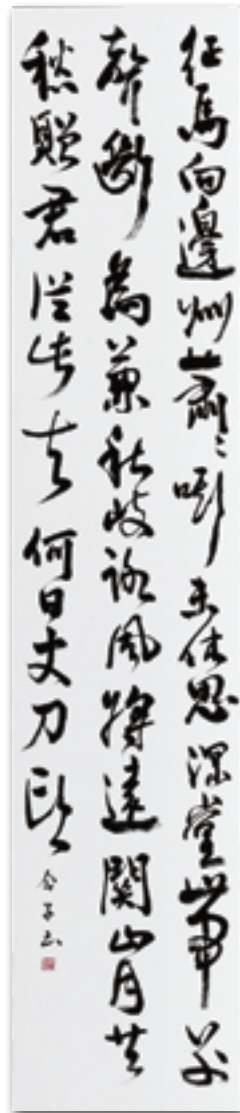 征馬向邊州蕭々嘶未休思深帶別
聲斷為兼秋歧路風將遠關山月共
愁贈君從此去何日大刀頭